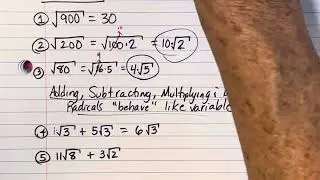 ① √900 = 30
② √200 = √100·2 = 10√2
③ √80 = √16·5 = 4√5
Adding, Subtracting, Multiplying
Radicals "behave" like
④ 1√3 + 5√3 = 6√3
⑤ 11√8 + 3√2